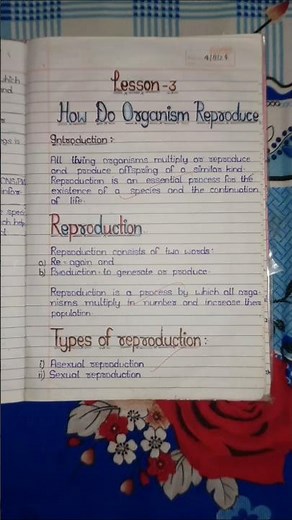 Lesson - 3
How Do Organism Reproduce
Introduction :
All living organisms multiply or reproduce
and produce offspring of a similar kind.
Reproduction is an essential process for the
existence of a species and the continuation
of life.
Reproduction
Reproduction consists of two words:
a) Re - again and
b) Production - to generate or produce.
Reproduction is a process by which all orga-
nisms multiply in number and increase their
population
Types of reproduction :
i) Asexual reproduction
ii) Sexual reproduction